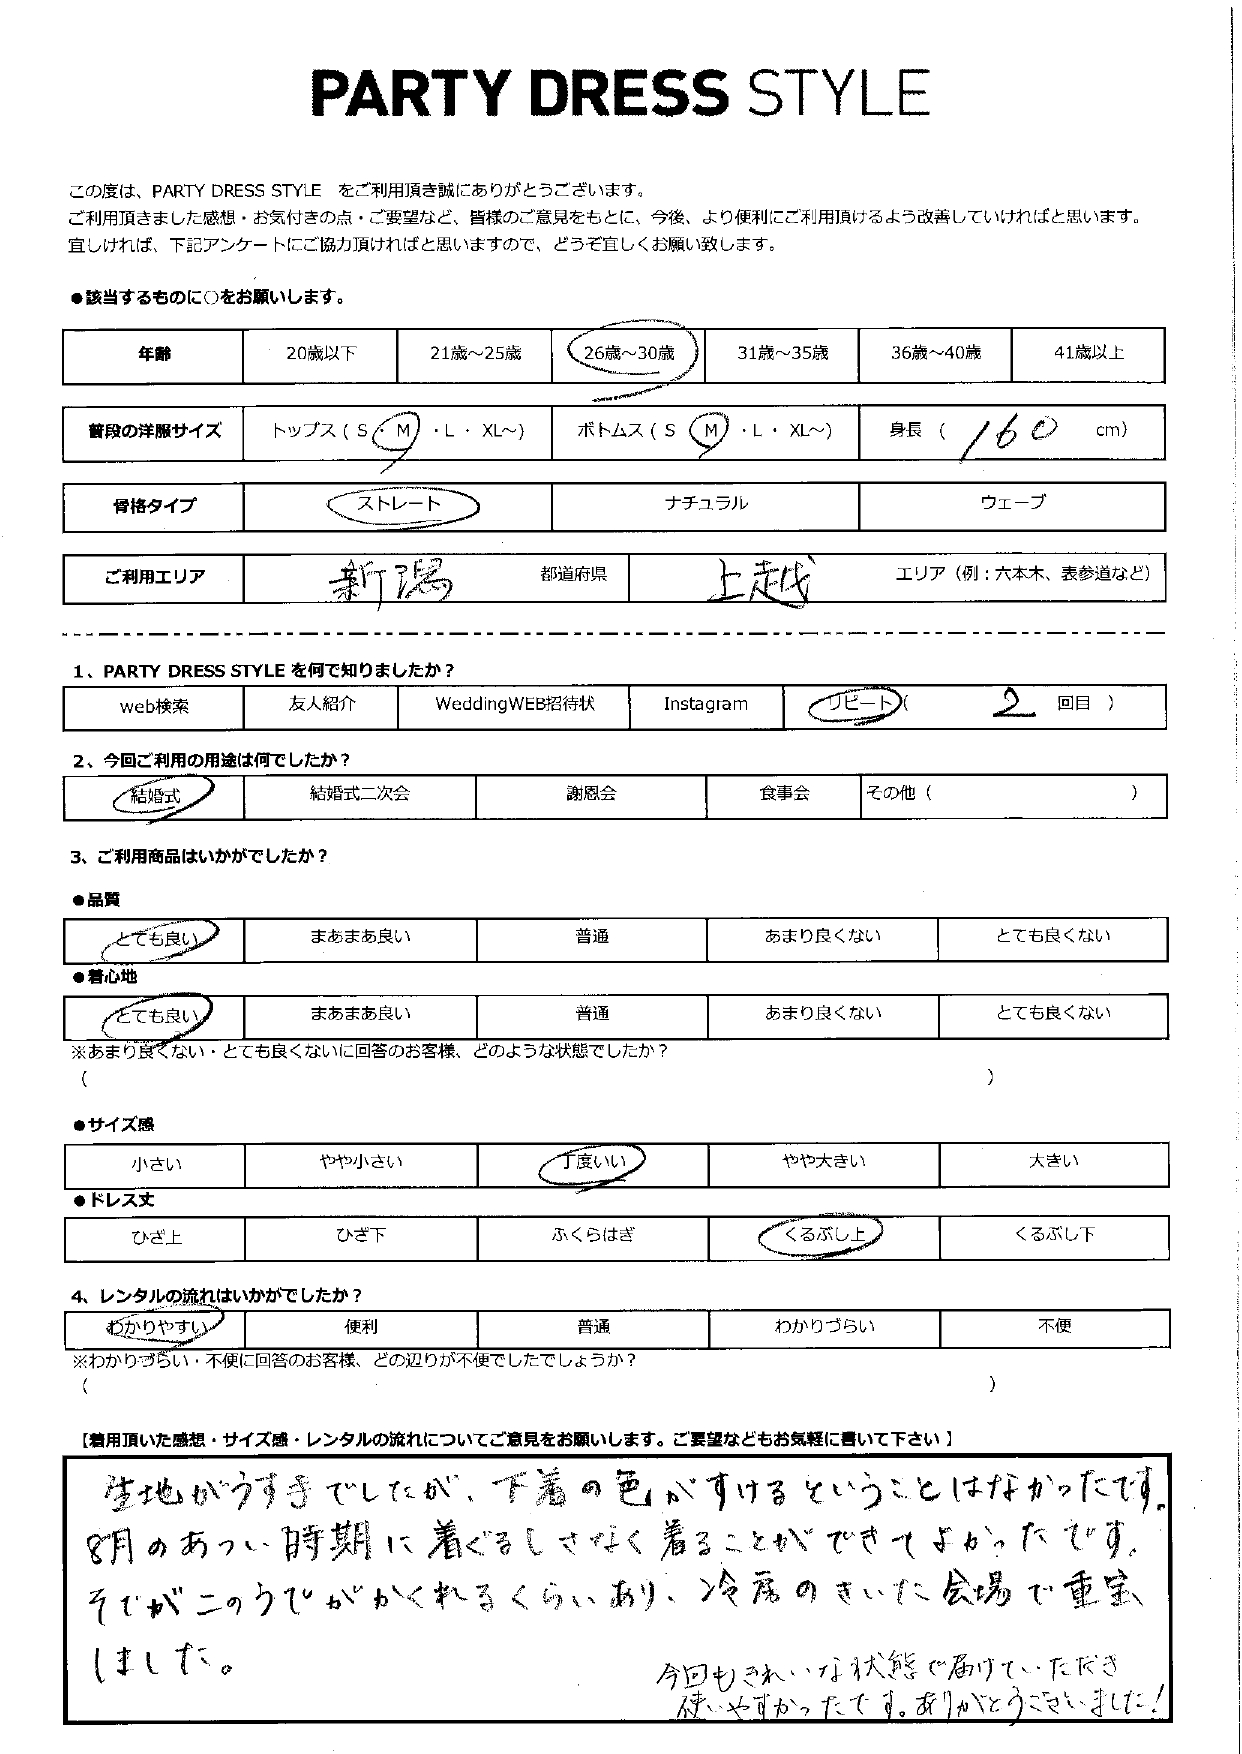 PARTY DRESS STYLE
この度は、PARTY DRESS STYLE　をご利用頂き誠にありがとうございます。
ご利用頂きました感想・お気付きの点・ご要望など、皆様のご意見をもとに、今後、より便利にご利用頂けるよう改善していければと思います。
宜しければ、下記アンケートにご協力頂ければと思いますので、どうぞ宜しくお願い致します。
●該当するものに○をお願いします。
年齢 20歳以下 21歳～25歳 26歳～30歳 31歳～35歳 36歳～40歳 41歳以上
普段の洋服サイズ トップス ( S ・ M ・L ・ XL～) ボトムス ( S M ・L ・ XL～) 身長 ( 160 cm)
骨格タイプ ストレート ナチュラル ウェーブ
ご利用エリア 新潟 都道府県 上越 エリア（例：六本木、表参道など）
1、PARTY DRESS STYLE を何で知りましたか？
web検索 友人紹介 WeddingWEB招待状 Instagram リピート( 2 回目 )
2、今回ご利用の用途は何でしたか？
結婚式 結婚式二次会 謝恩会 食事会 その他 ( )
3、ご利用商品はいかがでしたか？
●品質
とても良い まあまあ良い 普通 あまり良くない とても良くない
●着心地
とても良い まあまあ良い 普通 あまり良くない とても良くない
※あまり良くない・とても良くないに回答のお客様、どのような状態でしたか？
( )
●サイズ感
小さい やや小さい 丁度いい やや大きい 大きい
●ドレス丈
ひざ上 ひざ下 ふくらはぎ くるぶし上 くるぶし下
4、レンタルの流れはいかがでしたか？
わかりやすい 便利 普通 わかりづらい 不便
※わかりづらい・不便に回答のお客様、どの辺りが不便でしたでしょうか？
( )
【着用頂いた感想・サイズ感・レンタルの流れについてご意見をお願いします。ご要望などもお気軽に書いて下さい】
生地がうす手でしたが、下着の色がすけるということはなかったです。
8月のあつい時期に着ぐるしさなく着ることができてよかったです。
そでがニのうでがかくれるくらいあり、冷房のきいた会場で重宝
しました。
今回もきれいな状態で届けていただき
使いやすかったです。ありがとうございました！